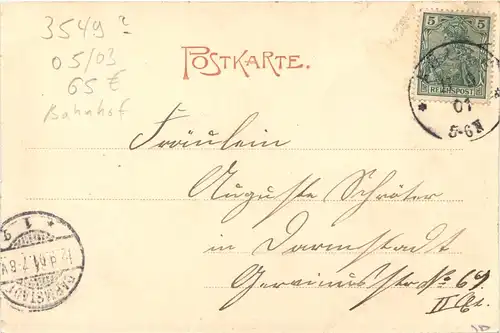 3549 ?
05/03
65 €
Bahnhof
POSTKARTE.
5
REICHSPOST
01
5-6N
Fräulein
Auguste Schröter
in Darmstadt
Gervinusstr. No 67.
II
* 1 g
12.9.01.7-8V
DARMSTADT